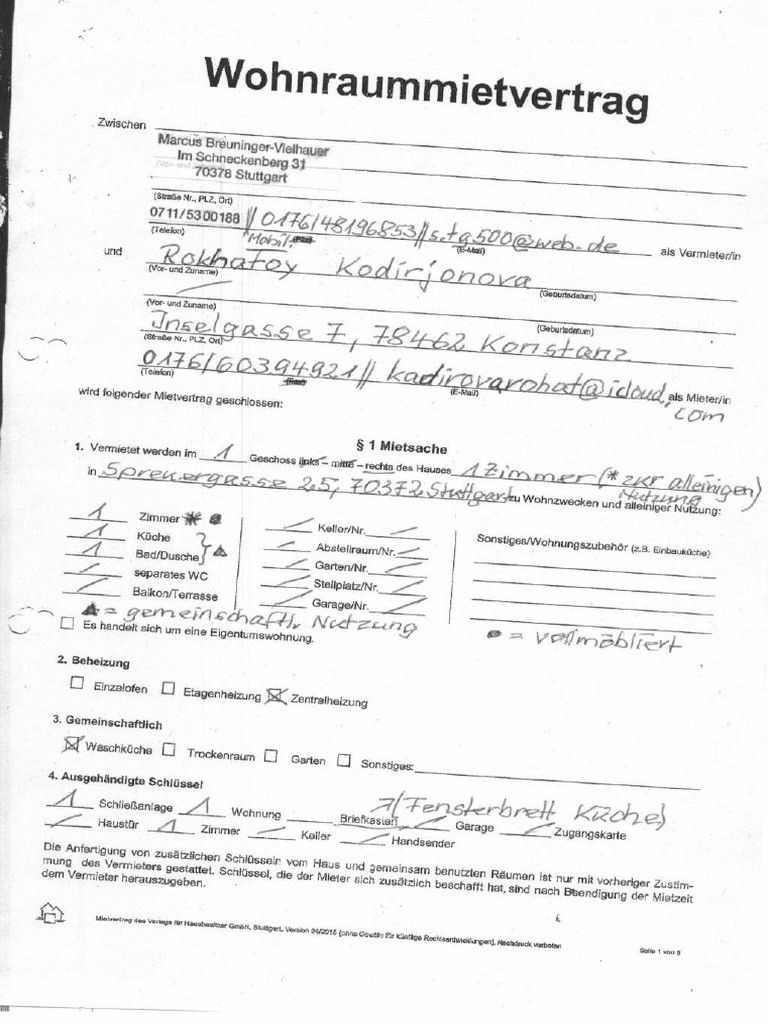 Wohnraummietvertrag
Zwischen
Marcus Breuninger-Vielhauer
Im Schneckenberg 31
70378 Stuttgart
(Straße Nr., PLZ, Ort)
0711/5300188 // 0176/48196853 // s.tg500@web.de als Vermieter/in
(Telefon) Mobil, (E-Mail)
und Rokhatoy Kodirjonova
(Vor- und Zuname) (Geburtsdatum)
(Vor- und Zuname) (Geburtsdatum)
Inselgasse 7, 78462 Konstanz
(Straße Nr., PLZ, Ort)
0176/60394921 // kadirovarohat@icloud.com als Mieter/in
(Telefon) (E-Mail)
wird folgender Mietvertrag geschlossen:
§ 1 Mietsache
1. Vermietet werden im 1 Geschoss links – mitte – rechts des Hauses 1 Zimmer (* zur alleinigen Nutzung)
in Spreuergasse 25, 70372 Stuttgart zu Wohnzwecken und alleiniger Nutzung:
1 Zimmer * ● Keller/Nr. Sonstiges/Wohnungszubehör (z.B. Einbauküche)
1 Küche Abstellraum/Nr.
1 Bad/Dusche ▲ Garten/Nr.
separates WC Stellplatz/Nr.
Balkon/Terrasse Garage/Nr.
▲ = gemeinschaftl. Nutzung ● = vollmöbliert
Es handelt sich um eine Eigentumswohnung.
2. Beheizung
Einzelofen Etagenheizung Zentralheizung
3. Gemeinschaftlich
Waschküche Trockenraum Garten Sonstiges:
4. Ausgehändigte Schlüssel
1 Schließanlage 1 Wohnung Briefkasten (Fensterbrett Küche) Garage Zugangskarte
Haustür 1 Zimmer Keller Handsender
Die Anfertigung von zusätzlichen Schlüsseln vom Haus und gemeinsam benutzten Räumen ist nur mit vorheriger Zustim-
mung des Vermieters gestattet. Schlüssel, die der Mieter sich zusätzlich beschafft hat, sind nach Beendigung der Mietzeit
dem Vermieter herauszugeben.
Mietvertrag des Verlags für Hausbesitzer GmbH, Stuttgart, Version 04/2016 (ohne Gewähr für künftige Rechtsentwicklungen). Nachdruck verboten
Seite 1 von 8